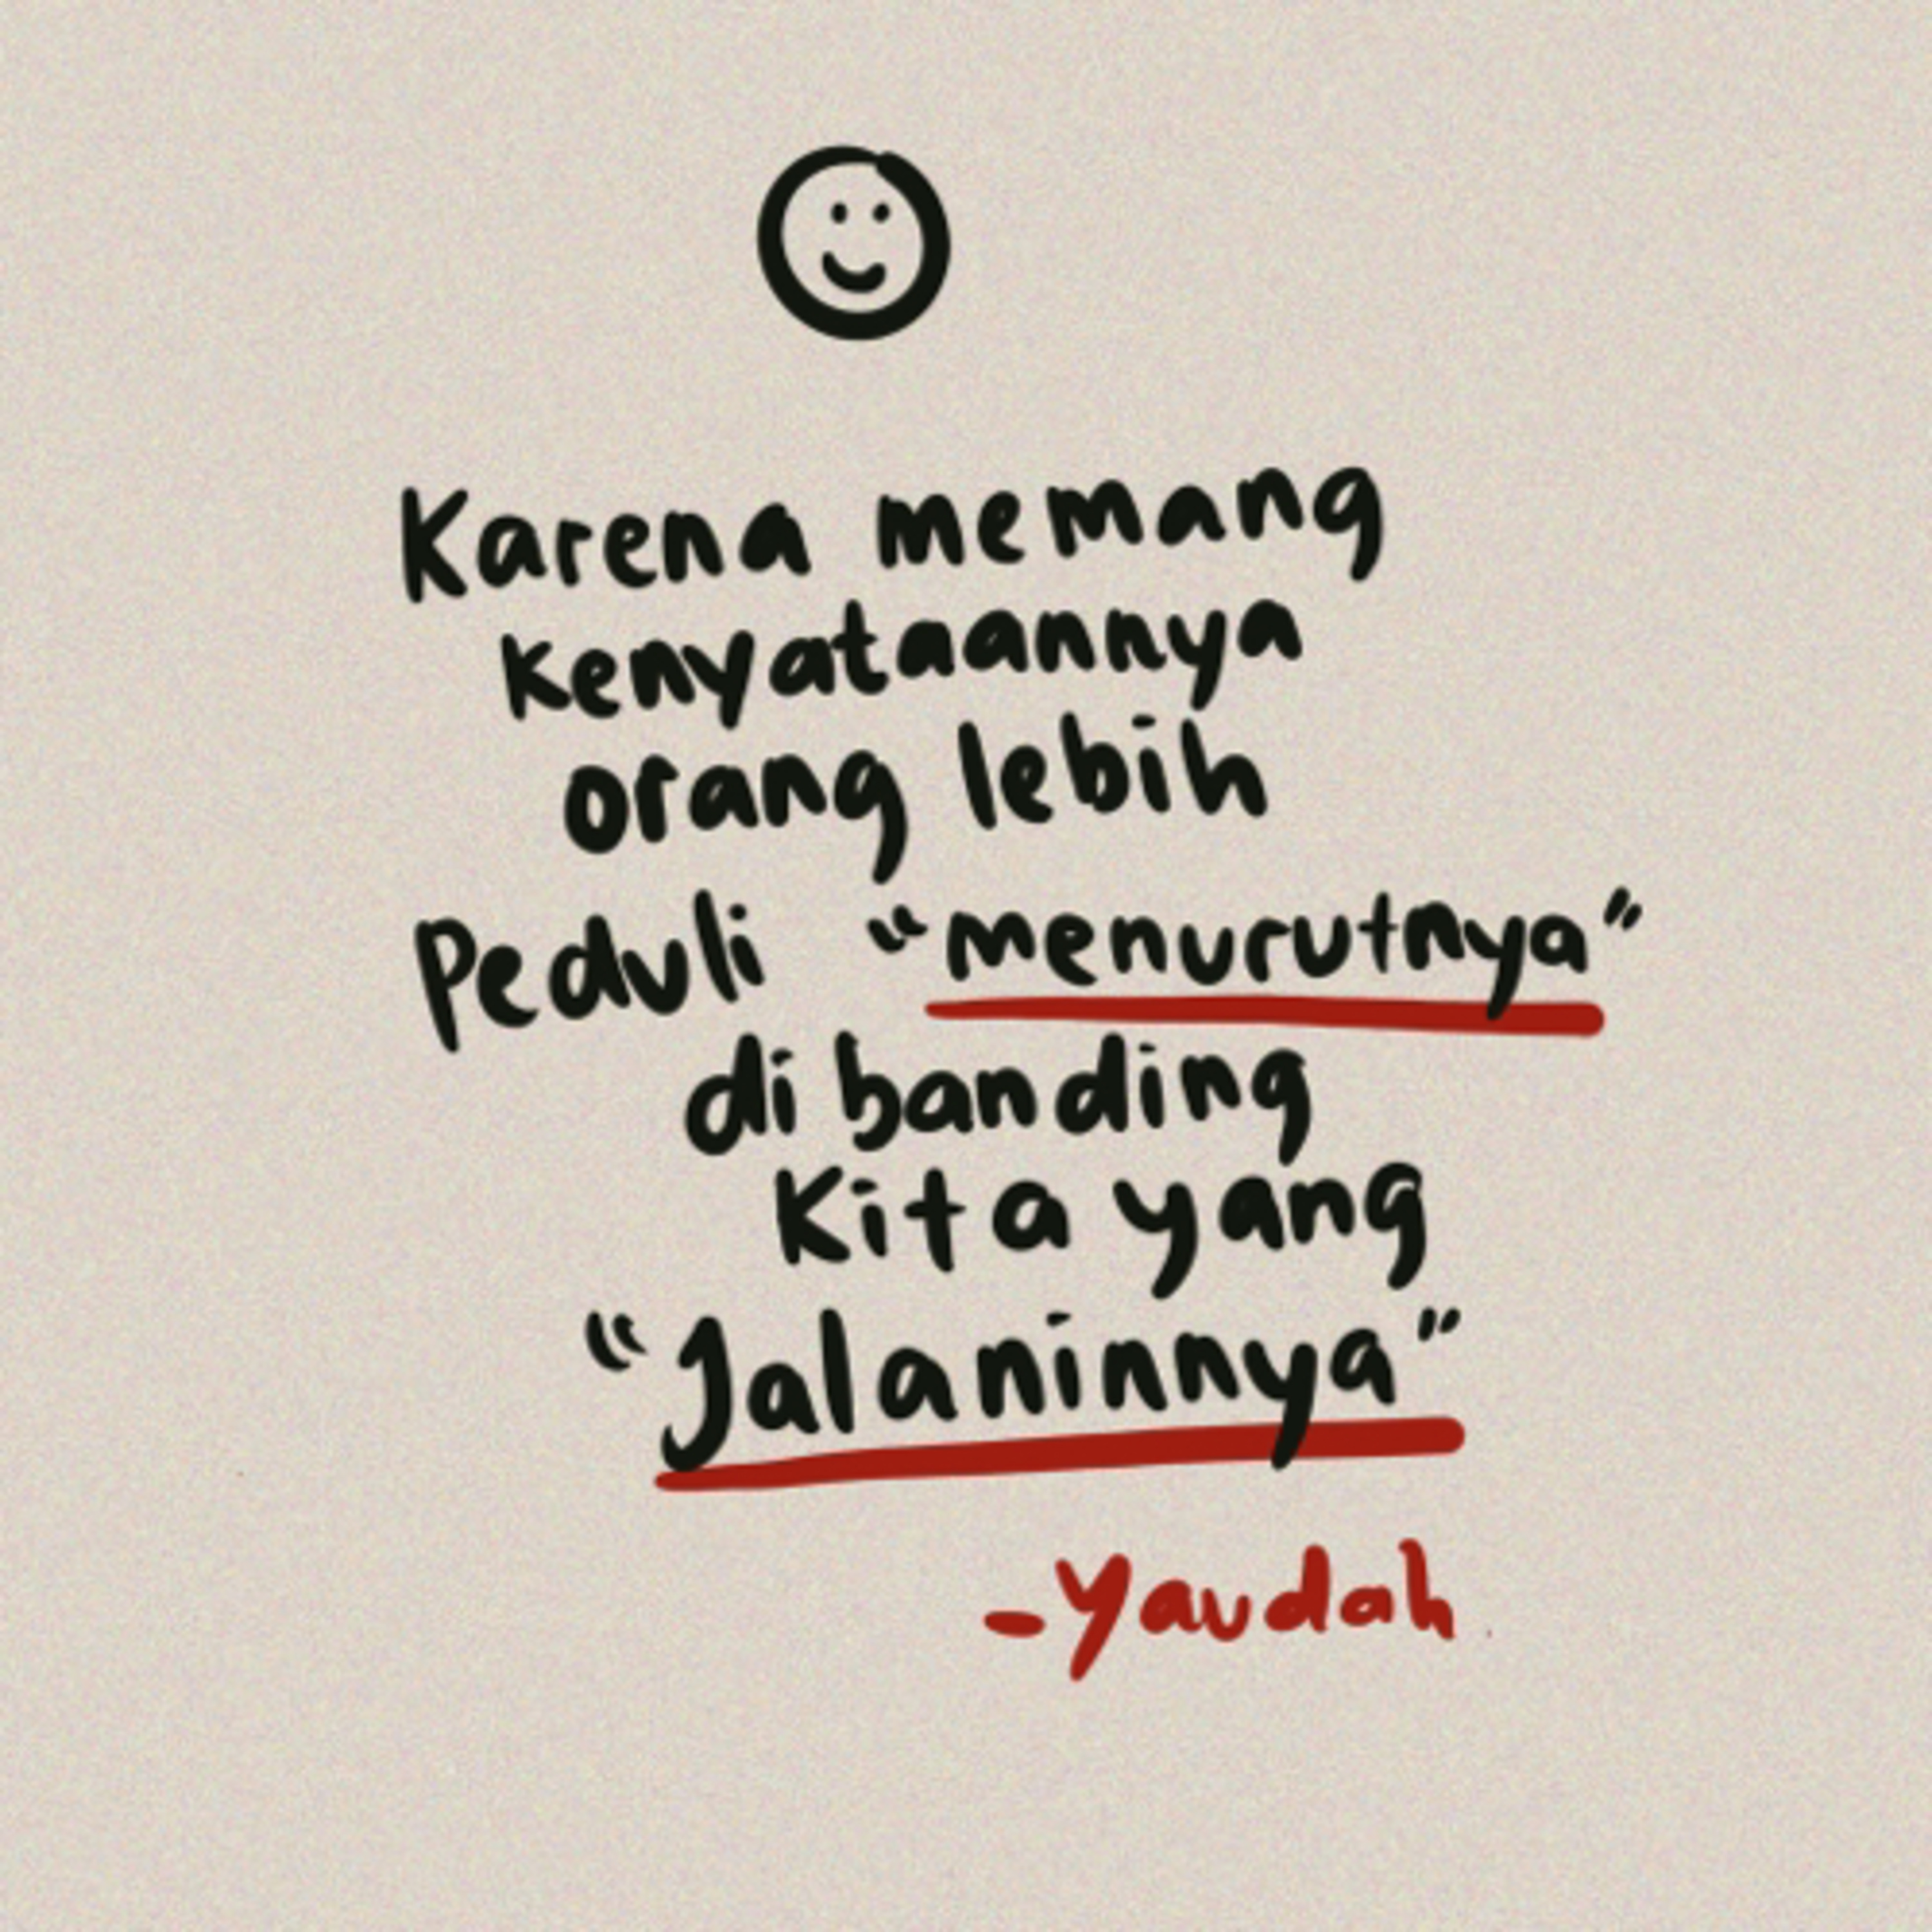 Karena memang
kenyataannya
orang lebih
Peduli "menurutnya"
di banding
Kita yang
"Jalaninnya"
-Yaudah